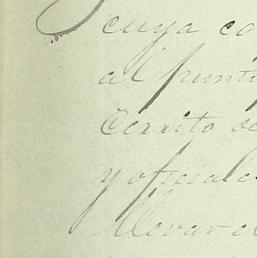 cuya co
al punto
Cerrito de
y oficiale
llevar a